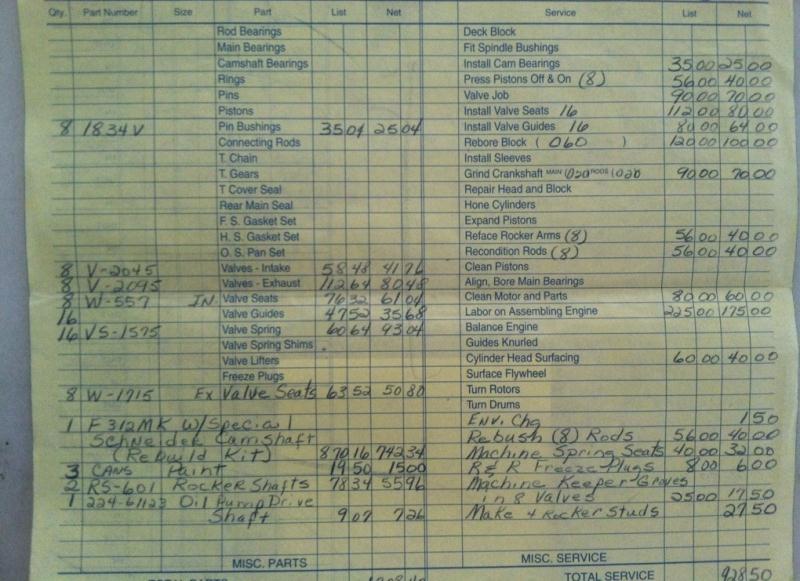 Qty. Part Number Size Part List Net Service List Net
Rod Bearings Deck Block
Main Bearings Fit Spindle Bushings
Camshaft Bearings Install Cam Bearings 35 00 25 00
Rings Press Pistons Off & On (8) 56 00 40 00
Pins Valve Job 90 00 70 00
Pistons Install Valve Seats 16 112 00 80 00
8 1834V Pin Bushings 35 04 25 04 Install Valve Guides 16 80 00 64 00
Connecting Rods Rebore Block ( 060 ) 120 00 100 00
T. Chain Install Sleeves
T. Gears Grind Crankshaft MAIN (020 RODS (020 90 00 70 00
T Cover Seal Repair Head and Block
Rear Main Seal Hone Cylinders
F. S. Gasket Set Expand Pistons
H. S. Gasket Set Reface Rocker Arms (8) 56 00 40 00
O. S. Pan Set Recondition Rods (8) 56 00 40 00
8 V-2045 Valves - Intake 58 48 41 76 Clean Pistons
8 V-2095 Valves - Exhaust 112 64 80 48 Align. Bore Main Bearings
8 W-557 IN Valve Seats 76 32 61 04 Clean Motor and Parts 80 00 60 00
16 Valve Guides 47 52 35 68 Labor on Assembling Engine 225 00 175 00
16 VS-1575 Valve Spring 60 64 43 04 Balance Engine
Valve Spring Shims Guides Knurled
Valve Lifters Cylinder Head Surfacing 60 00 40 00
Freeze Plugs Surface Flywheel
8 W-1715 Ex Valve Seats 63 52 50 80 Turn Rotors
Turn Drums
1 F312MK W/Special Env. Chg 1 50
Schneider Camshaft Rebush (8) Rods 56 00 40 00
(Rebuild Kit) 870 16 742 34 Machine Spring Seats 40 00 32 00
3 CANS Paint 19 50 15 00 R & R Freeze Plugs 8 00 6 00
2 RS-601 Rocker Shafts 78 34 55 96 Machine Keeper Groves
1 224-61123 Oil Pump Drive in 8 Valves 25 00 17 50
Shaft 9 07 7 26 Make 4 Rocker Studs 27 50
MISC. PARTS MISC. SERVICE
TOTAL SERVICE 928 50